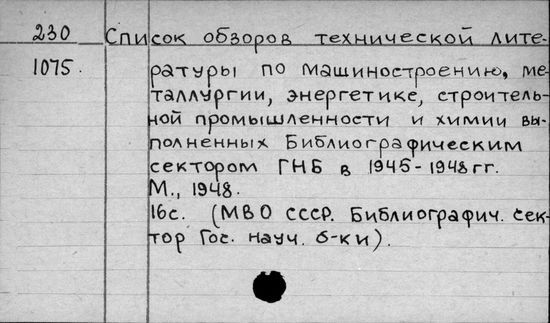 230 Список обзоров технической лите-
1075. ратуры по машиностроению, ме-
таллургии, энергетике, строитель-
ной промышленности и химии вы-
полненных Библиографическим
сектором ГНБ в 1945-1948гг.
М., 1948.
16с. (МВО СССР. Библиографич. сек-
тор Гос. науч. б-ки).